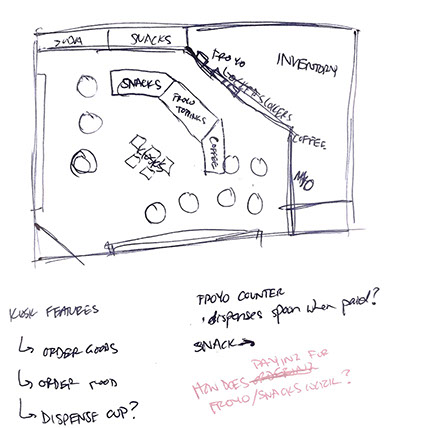 SODA
SNACKS
FROYO
INVENTORY
SNACKS
FROYO
TOPPINGS
COFFEE
COFFEE
KIOSK
KIOSK FEATURES
ORDER GOODS
ORDER FOOD
DISPENSE CUP?
FROYO COUNTER
· dispenses spoon when paid?
SNACK
PAYING FOR
HOW DOES ORDERING
FROYO/SNACKS WORK?